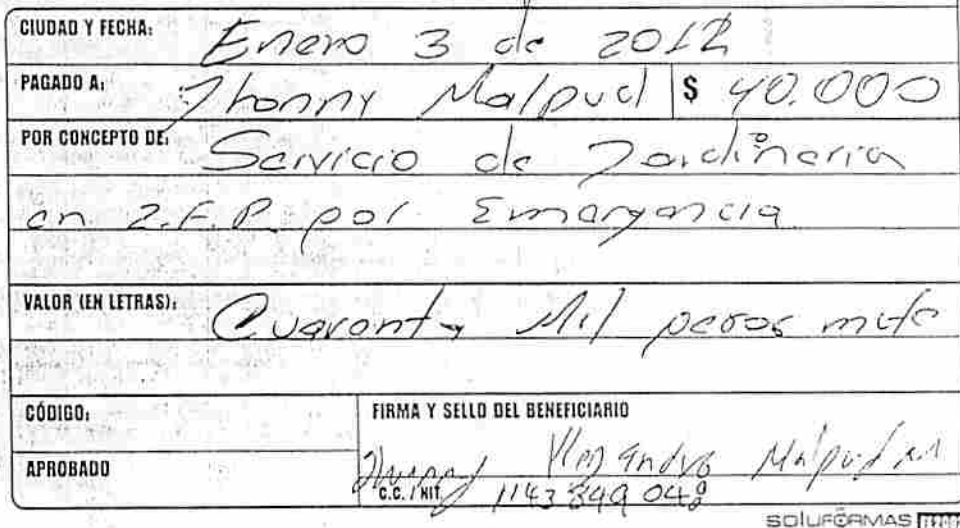 CIUDAD Y FECHA: Enero 3 de 2012
PAGADO A: Jhonny Malpud $ 40.000
POR CONCEPTO DE: Servicio de Jardineria
en Z.F.P. por Emergencia
VALOR (EN LETRAS): Cuarenta Mil pesos mcte
CÓDIGO: FIRMA Y SELLO DEL BENEFICIARIO
APROBADO Malpud
C.C. / NIT. 1143 849 048
SOLUFORMAS